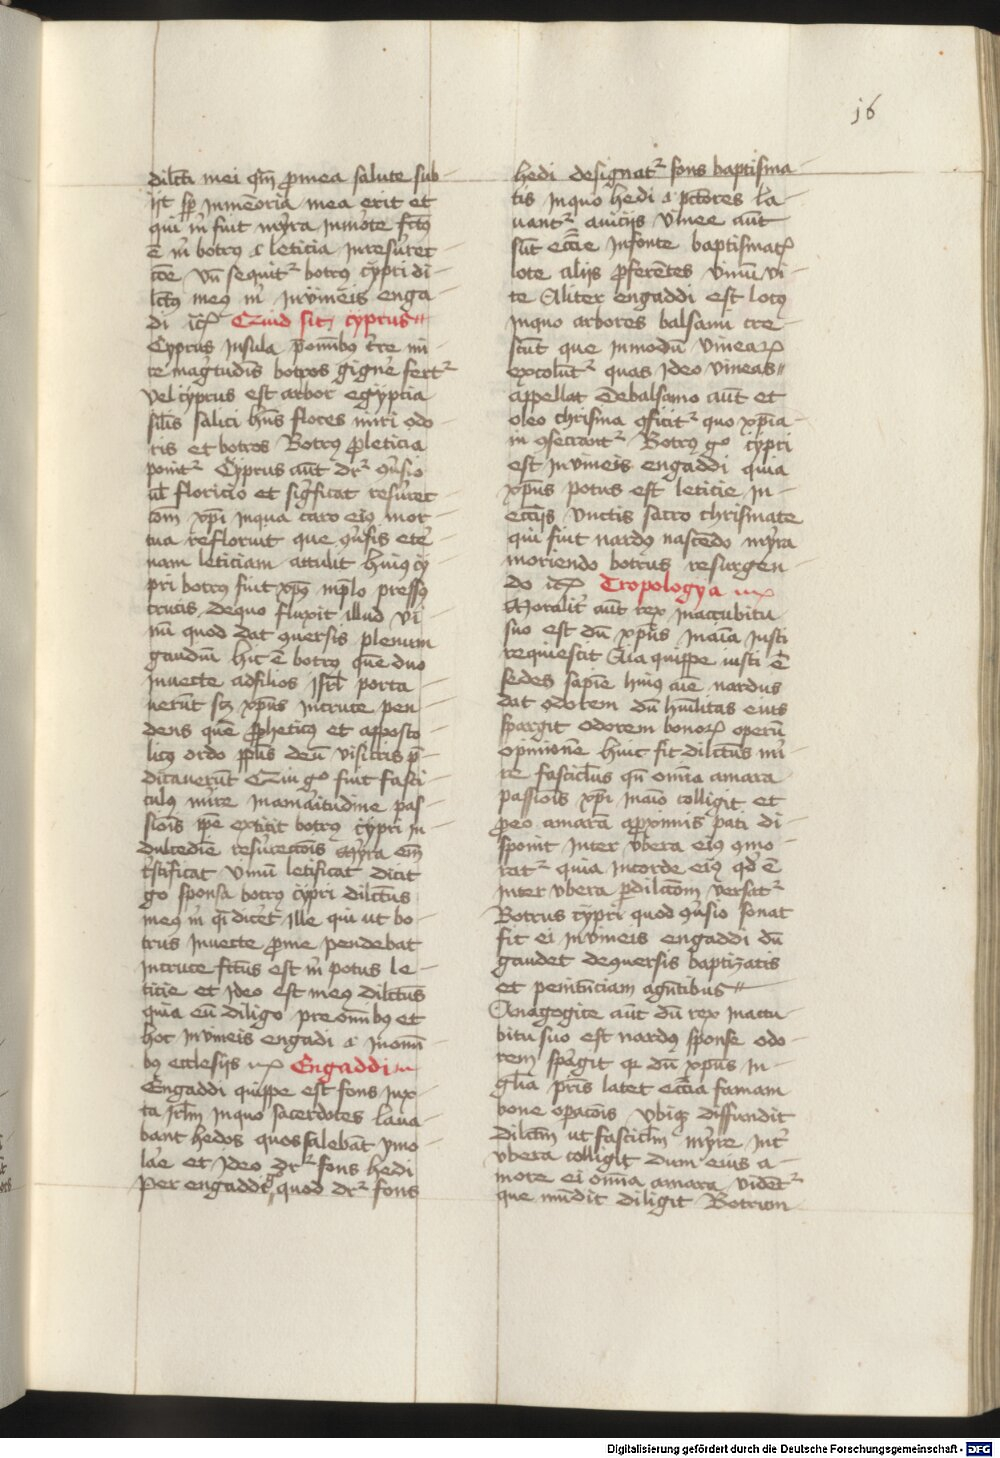 16
dilcti mei qm̄ ꝓmea salute sub
ijt sp̄ in memoria mea erit et
qui m̄ fuit myrra in morte fctꝰ
ē m̄ botrꝰ ⁊ leticia in resurrec
cōe vn̄ sequit᷑ botrꝰ cypri di
lctꝰ meꝰ m̄ in vineis enga
di Quid sit cyprus
Cyprus insula
te magtudis botros gignere fert᷑
vel cyprus est arbor egyptia
silis salici hn̄s flores miri odo
ris et botros Botrꝰ ꝓ leticia
ponit᷑ Cyprus aūt dr᷑ ꝯusio
ul̄ floricio et sigficat resurrec
cōm xp̄i in qua caro eiꝰ mor
tua refloruit que ꝯusis ete
nam leticiam attulit huiꝰ cy
pri botrꝰ fuit xp̄c mplo pressꝰ
crucis de quo fluxit illud vi
nū quod dat ꝯuersis plenum
gaudiū hic ē botrꝰ quē duo
in vecte ad filios isrl̄ porta
uerūt scꝫ xp̄us in cruce pen
dens quē ꝓpheticꝰ et apposto
licꝰ ordo pplis deū visuris p̄
dicauerūt Qui gͦ fuit fasci
culꝰ mirre in amaritudine pas
siōis ip̄e extitit botrꝰ cypri in
dulcediē resurrectōis myrra em̄
tristificat vinū letificat dicit
gͦ sponsa botrꝰ cypri dilctūs
meꝰ m̄ qͣ diceret ille qui ut bo
trus in vecte ꝓ me pendebat
in cruce fctūs est m̄ potus le
ticie et ideo est meꝰ dilctūs
quia eū diligo pre omībꝰ et
hoc in vineis engadi ⁊ in omī
bꝰ ecclesijs Engaddi
Engaddi quippe est fons iux
ta irl̄m in quo sacerdotes laua
bant hedos quos salebāt ymo
lare et ideo dr᷑ fons hedi
per engaddi quod dr᷑ fons
hedi designat᷑ fons baptisma
tis in quo hedi ⁊ pctores la
uant᷑ a vicijs vinee aūt
sūt eccīe in fonte baptismatꝭ
lote alijs ꝓferētes vinū vi
te Aliter engaddi est locꝰ
in quo arbores balsami cre
scūt que in modū vineaꝝ
excolūt᷑ quas ideo vineas
appellat De balsamo aūt et
oleo chrisma ꝯficit᷑ quo xp̄ia
ni ꝯsecrant᷑ Botrꝰ gͦ cypri
est in vineis engaddi quia
xp̄us potus est leticie in
eccijs vnctis sacro chrismate
qui fuit nardꝰ nascēdo myrra
moriendo botrus resurgen
do Tropologya
Moralit᷑ aūt rex in accubitu
suo est dū xp̄us in aīa iusti
requiescit Aīa quippe iusti ē
sedes sapīe huiꝰ aīe nardus
dat odorem dū hūilitas eius
spargit odorem bonoꝝ operū
opinione huic fit dilctūs mir
re fascicl̄us qn̄ omīa amara
passiōis xp̄i in aīo colligit et
ꝓ eo amara a proximis pati di
sponit inter vbera eiꝰ ꝯmo
rat᷑ quia in corde eiꝰ qd̄ ē
inter vbera per dilctōm versat᷑
Botrus cypri quod ꝯusio sonat
fit ei in vineis engaddi dū
gaudet de ꝯuersis baptizatis
et penitēciam agētibus
Anagogice aūt dū rex in accu
bitu suo est nardꝰ sponse odo
rem spargit qꝛ dū xp̄us in
glīa pris latet eccīa famam
bone opatōis vbiqꝫ diffundit
dilctm̄ ut fascicl̄m myrre int᷑
vbera colligit dum eius a
more ei omīa amara vident᷑
que mūdit diligit Botrum
Digitalisierung gefördert durch die Deutsche Forschungsgemeinschaft - DFG